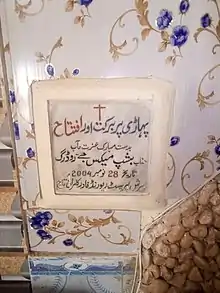 پہاڑی پر برکت اور افتتاح
بدست مبارک عزت مآب
جناب بشپ میکس جے روڈرگ
تاریخ 28 نومبر 2004ء